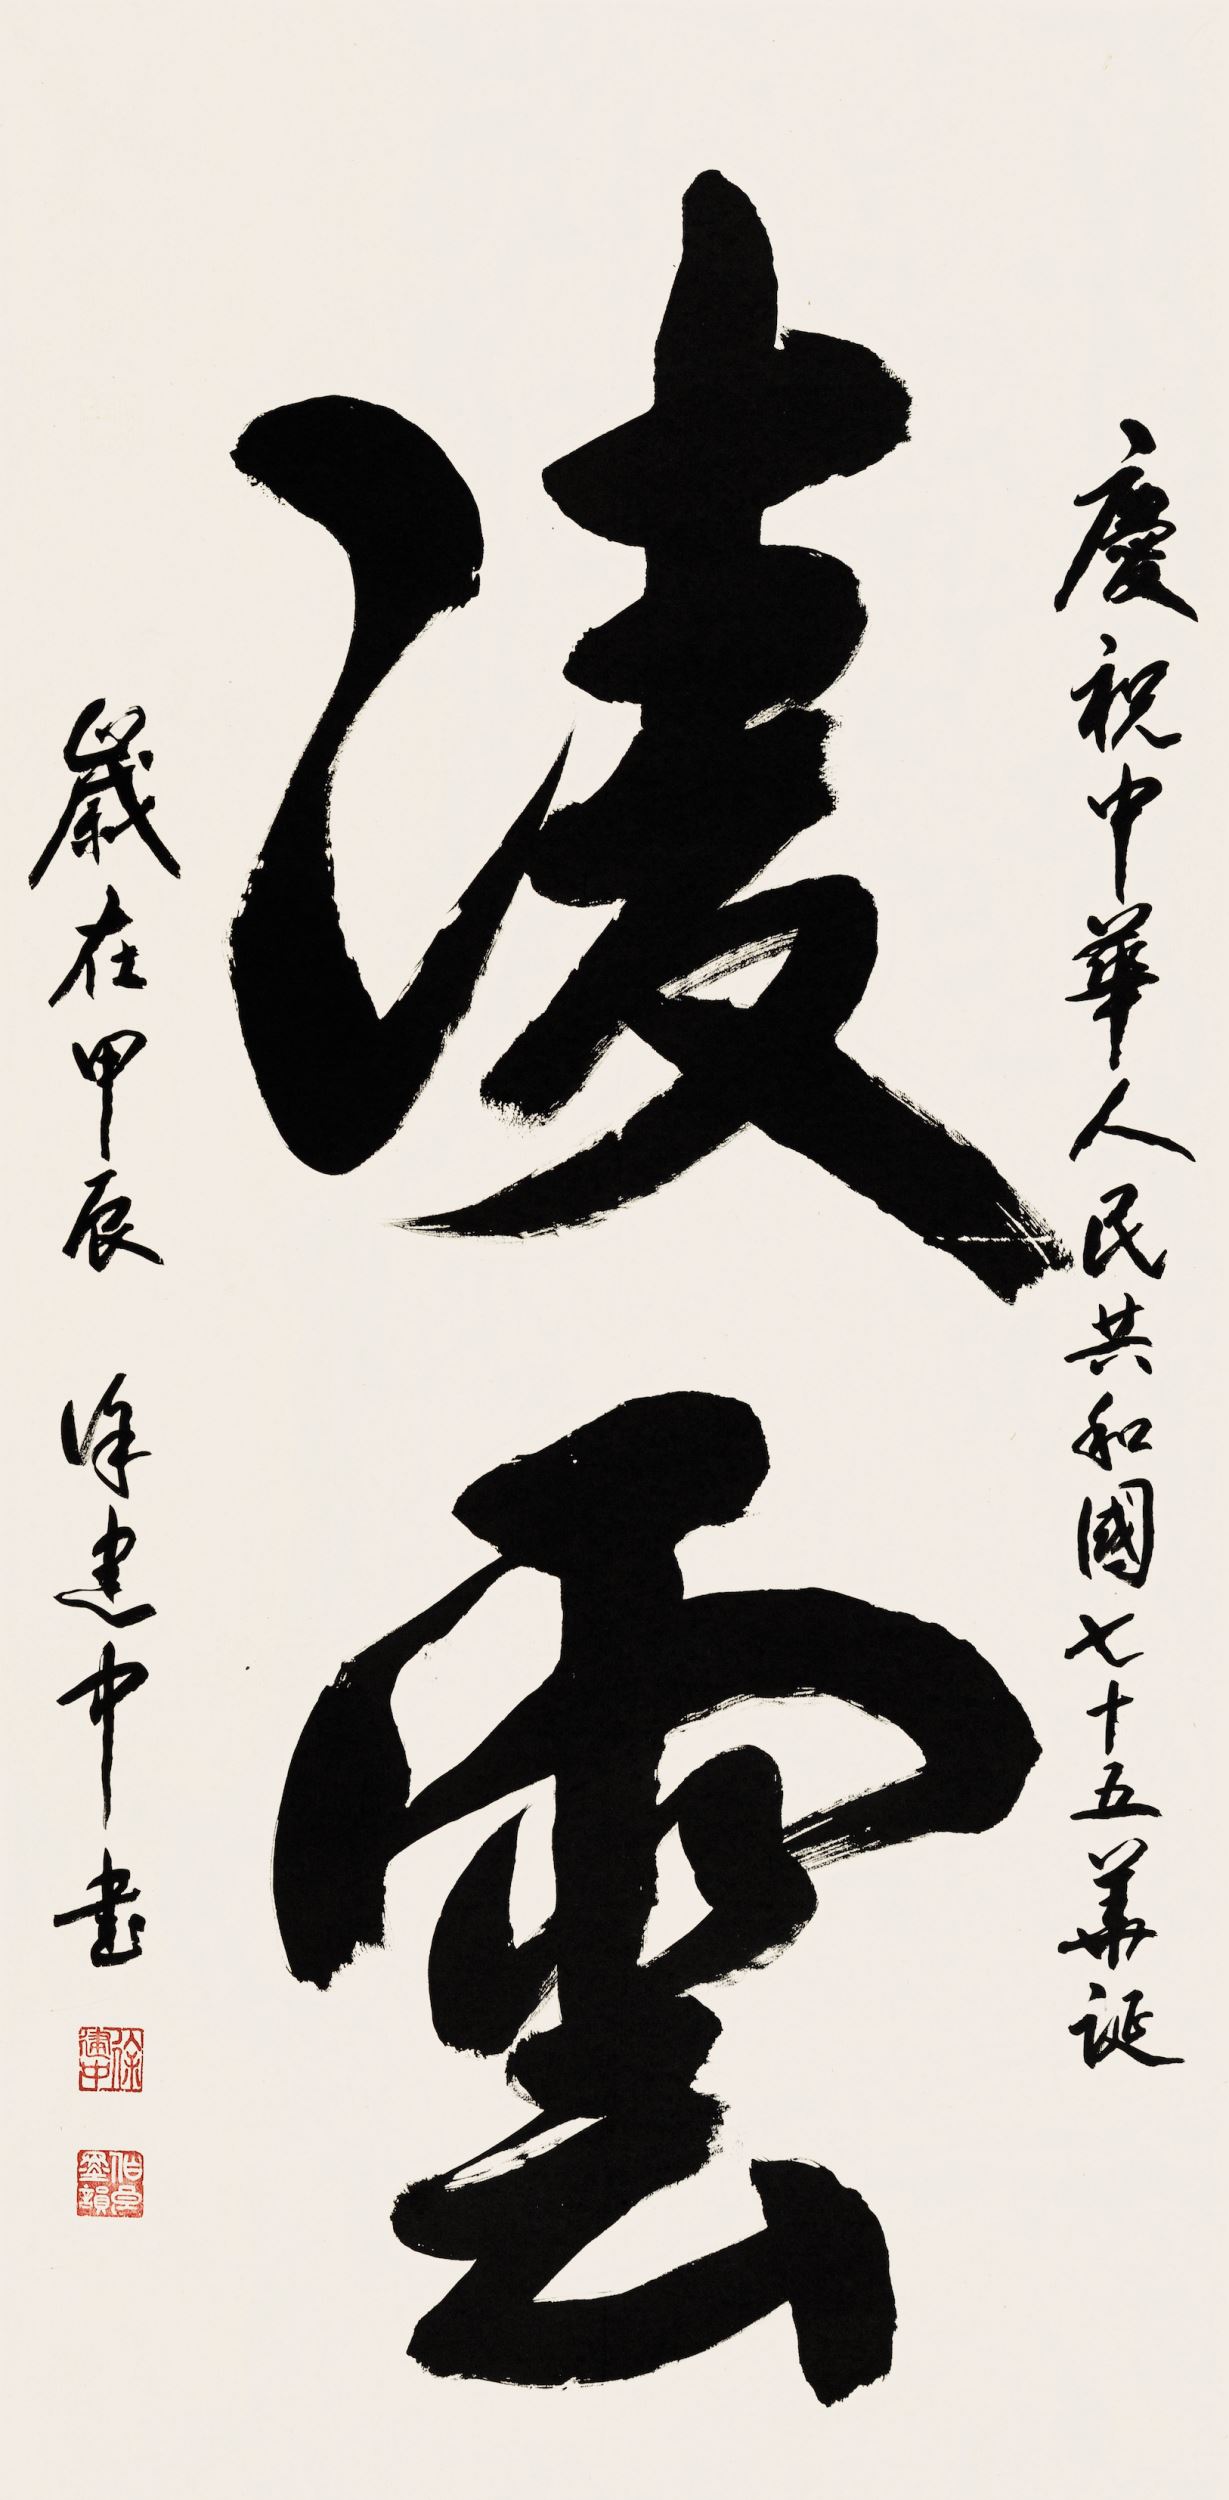 慶祝中華人民共和國七十五華誕
凌雲
歲在甲辰 徐建中書
徐建中